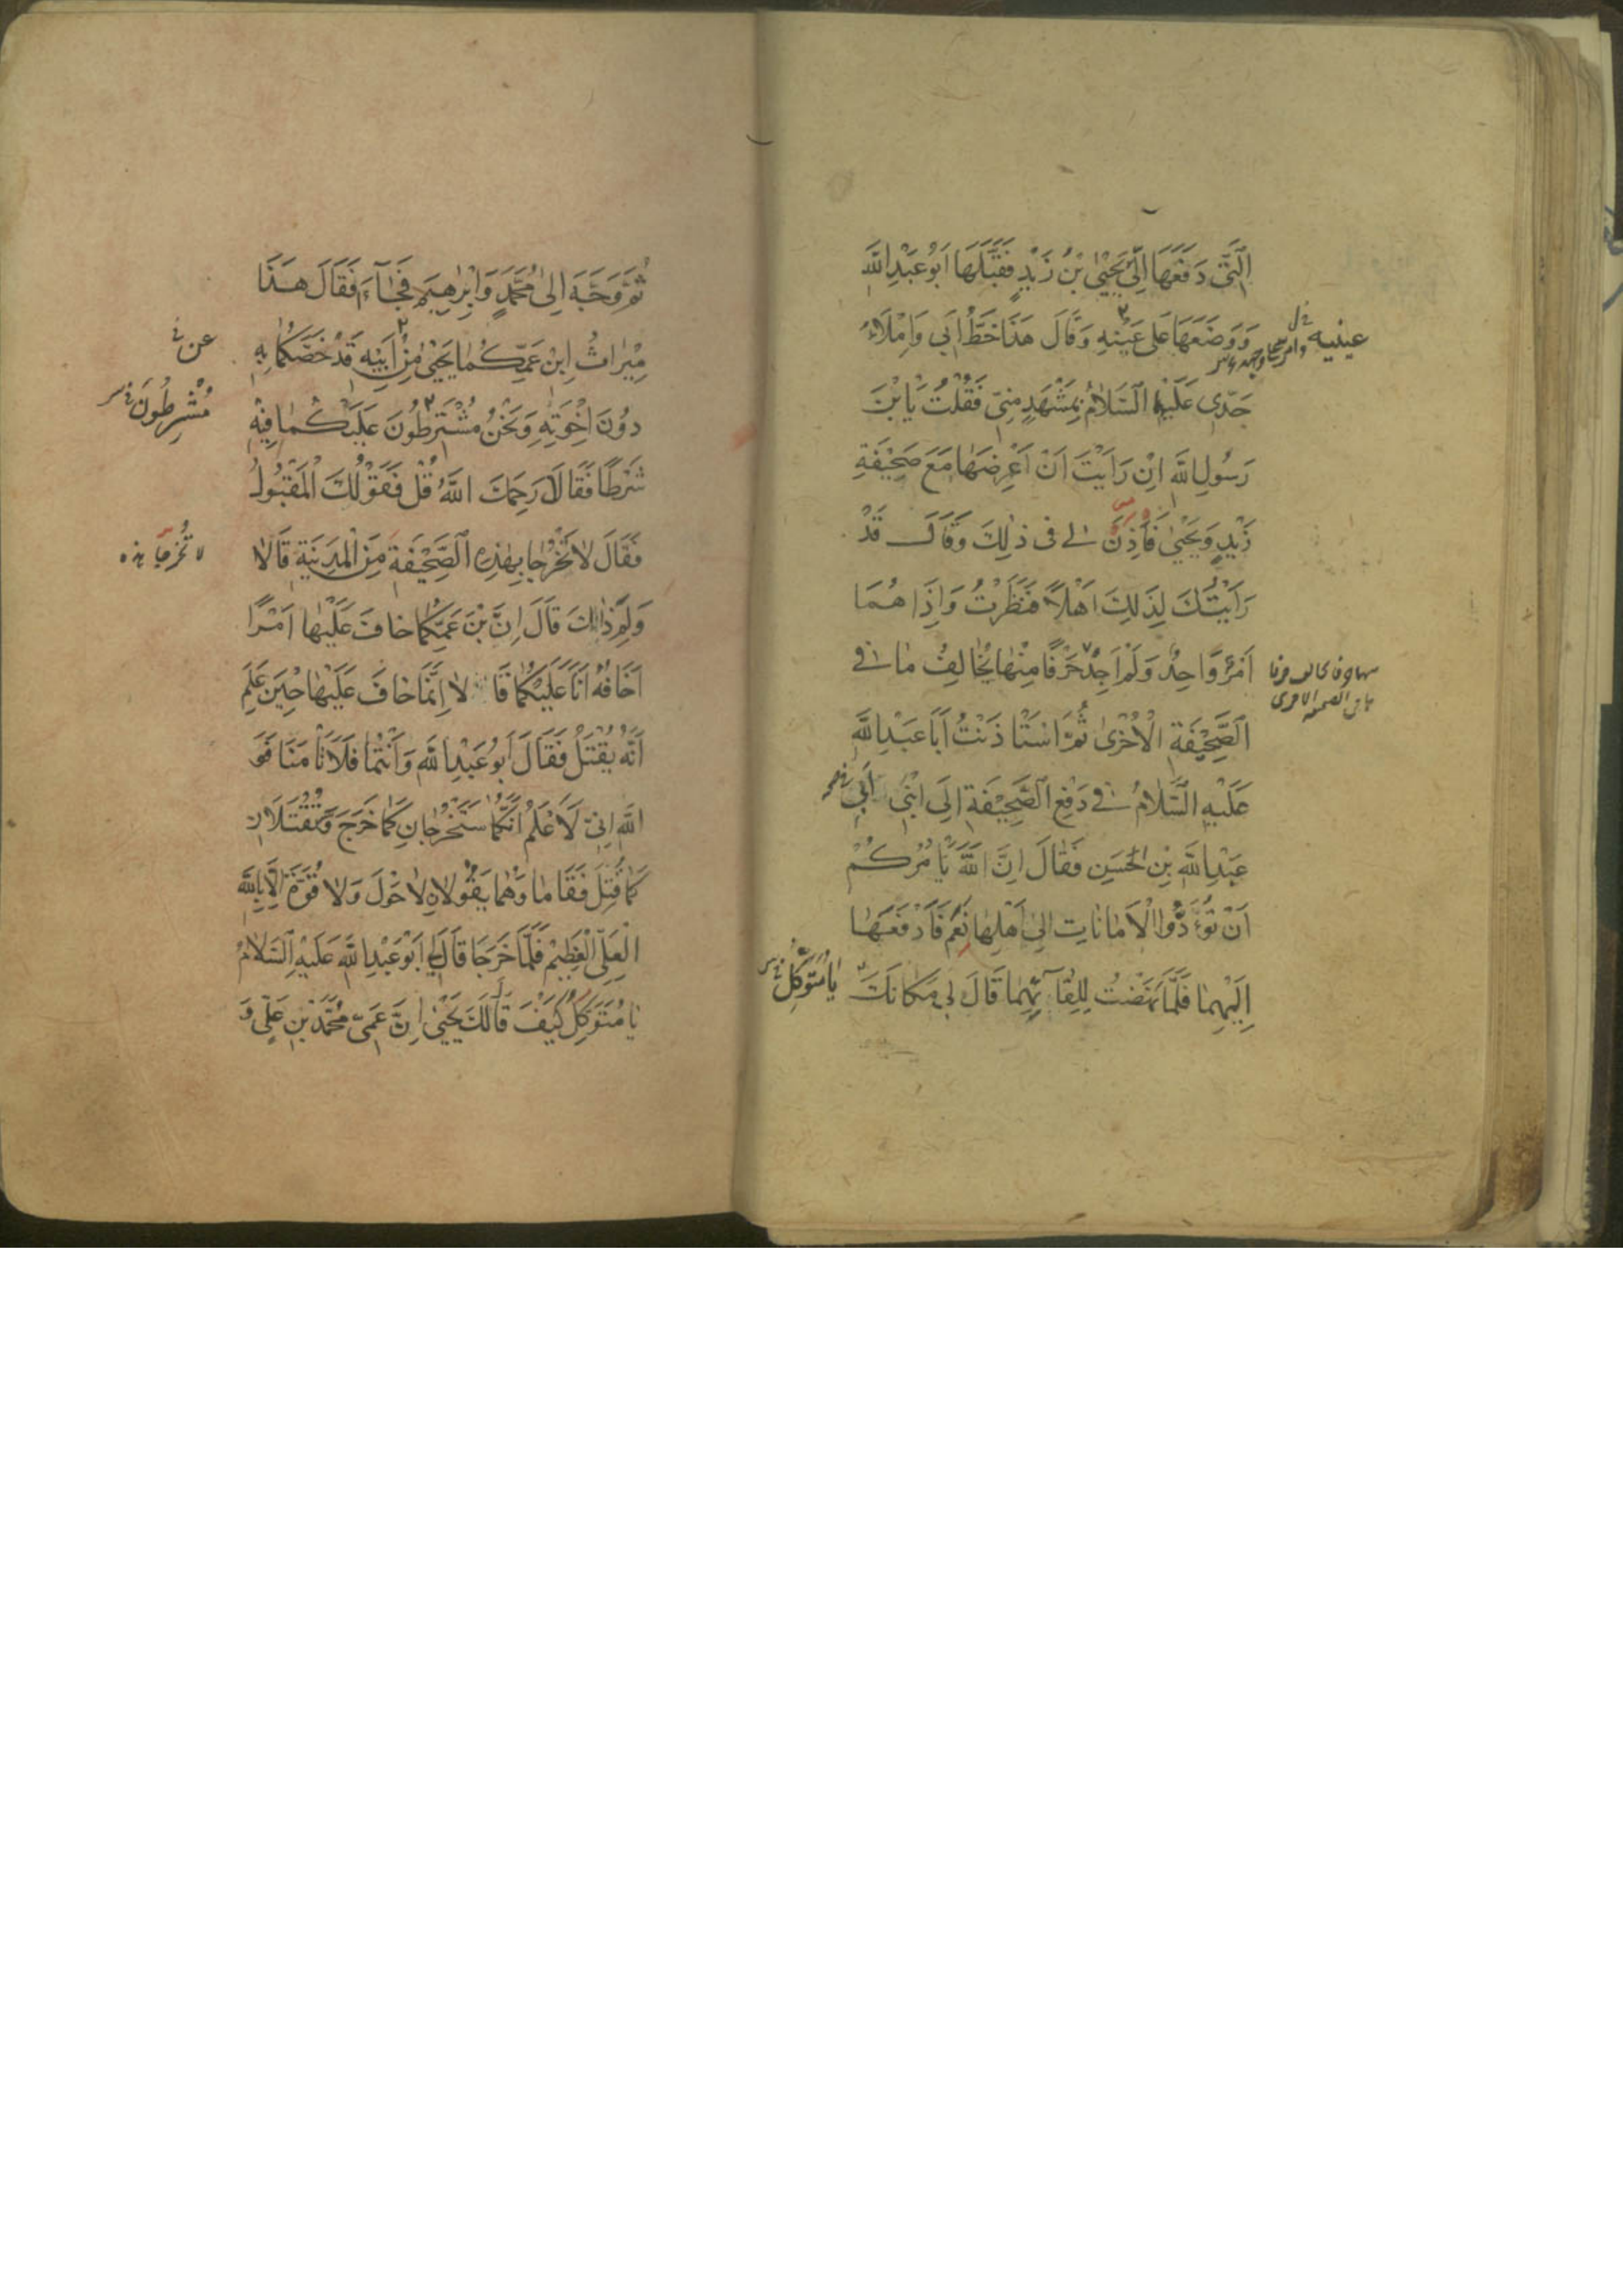 اَلَّتِي دَفَعَهَا اِلَيَّ يَحْيَى بْنُ زَيْدٍ فَقَبَّلَهَا اَبُو عَبْدِ اللّٰهِ
وَوَضَعَهَا عَلَى عَيْنِهِ وَقَالَ هَذَا خَطُّ اَبِي وَاِمْلَاءُ
عينيه
جَدِّي عَلَيْهِمَا السَّلَامُ بِمَشْهَدٍ مِنِّي فَقُلْتُ يَا بْنَ
رَسُولِ اللّٰهِ اِنْ رَاَيْتَ اَنْ اَعْرِضَهَا مَعَ صَحِيْفَةِ
زَيْدٍ وَيَحْيَى فَاَذِنَ لِي فِي ذٰلِكَ وَقَالَ قَدْ
رَاَيْتُكَ لِذٰلِكَ اَهْلًا فَنَظَرْتُ وَاِذَا هُمَا
اَمْرٌ وَاحِدٌ وَلَمْ اَجِدْ حَرْفًا مِنْهَا يُخَالِفُ مَا فِي
الصَّحِيْفَةِ الْاُخْرٰى ثُمَّ اسْتَاْذَنْتُ اَبَا عَبْدِ اللّٰهِ
عَلَيْهِ السَّلَامُ فِي دَفْعِ الصَّحِيْفَةِ اِلَى ابْنَيْ
عَبْدِ اللّٰهِ بْنِ الْحَسَنِ فَقَالَ اِنَّ اللّٰهَ يَاْمُرُكُمْ
اَنْ تُؤَدُّوا الْاَمَانَاتِ اِلَى اَهْلِهَا نَعَمْ فَادْفَعْهَا
اِلَيْهِمَا فَلَمَّا نَهَضْتُ لِلِقَائِهِمَا قَالَ لِي مَكَانَكَ
يَا مُتَوَكِّلُ
ثُمَّ وَجَّهَ اِلَى مُحَمَّدٍ وَاِبْرٰهِيمَ فَجَاءَا فَقَالَ هَذَا
مِيْرَاثُ ابْنِ عَمِّكُمَا يَحْيَى مِنْ اَبِيْهِ قَدْ خَصَّكُمَا بِهِ
عن
دُونَ اِخْوَتِهِ وَنَحْنُ مُشْتَرِطُونَ عَلَيْكُمَا فِيْهِ
مُشْرِطُونَ
شَرْطًا فَقَالَا رَحِمَكَ اللّٰهُ قُلْ فَقَوْلُكَ الْمَقْبُولُ
فَقَالَ لَا تَخْرُجَا بِهٰذِهِ الصَّحِيْفَةِ مِنَ الْمَدِيْنَةِ قَالَا
لا تُخْرِجَا هذه
وَلِمَ ذٰلِكَ قَالَ اِنَّ بْنَ عَمِّكُمَا خَافَ عَلَيْهَا اَمْرًا
اَخَافُهُ اَنَا عَلَيْكُمَا قَالَا اِنَّمَا خَافَ عَلَيْهَا حِيْنَ عَلِمَ
اَنَّهُ يُقْتَلُ فَقَالَ اَبُو عَبْدِ اللّٰهِ وَاَنْتُمَا فَلَا تَاْمَنَا فَوَ
اللّٰهِ اِنِّي لَاَعْلَمُ اَنَّكُمَا سَتَخْرُجَانِ كَمَا خَرَجَ وَتُقْتَلَانِ
كَمَا قُتِلَ فَقَامَا وَهُمَا يَقُولَانِ لَا حَوْلَ وَلَا قُوَّةَ اِلَّا بِاللّٰهِ
الْعَلِيِّ الْعَظِيْمِ فَلَمَّا خَرَجَا قَالَ لِي اَبُو عَبْدِ اللّٰهِ عَلَيْهِ السَّلَامُ
يَا مُتَوَكِّلُ كَيْفَ قَالَ لَكَ يَحْيَى اِنَّ عَمِّي مُحَمَّدَ بْنَ عَلِيٍّ وَ